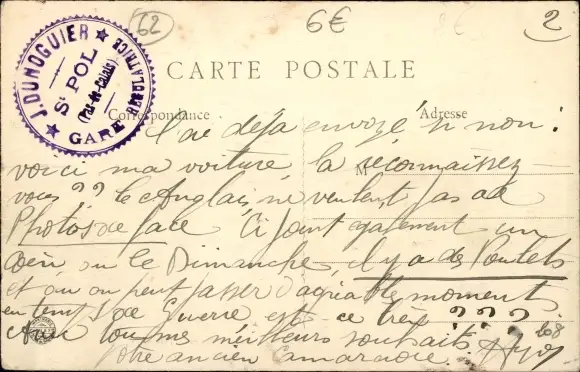 62
6€
2
CARTE POSTALE
J. DUNOGUIER
St POL
(Pas-de-Calais)
GARE RÉGULATRICE
Correspondance
Adresse
l'ai déjà envoyé si non :
voici ma voiture, la reconnaissez
M
vous ?? le Anglais ne veulent pas de
Photos de face Ci joint également un
coin où le Dimanche, il y a des Poulets
et où on peut passer d'agréables moments
en temps de Guerre est-ce très ???
Avec tous mes meilleurs souhaits
Votre ancien Camarade.
208